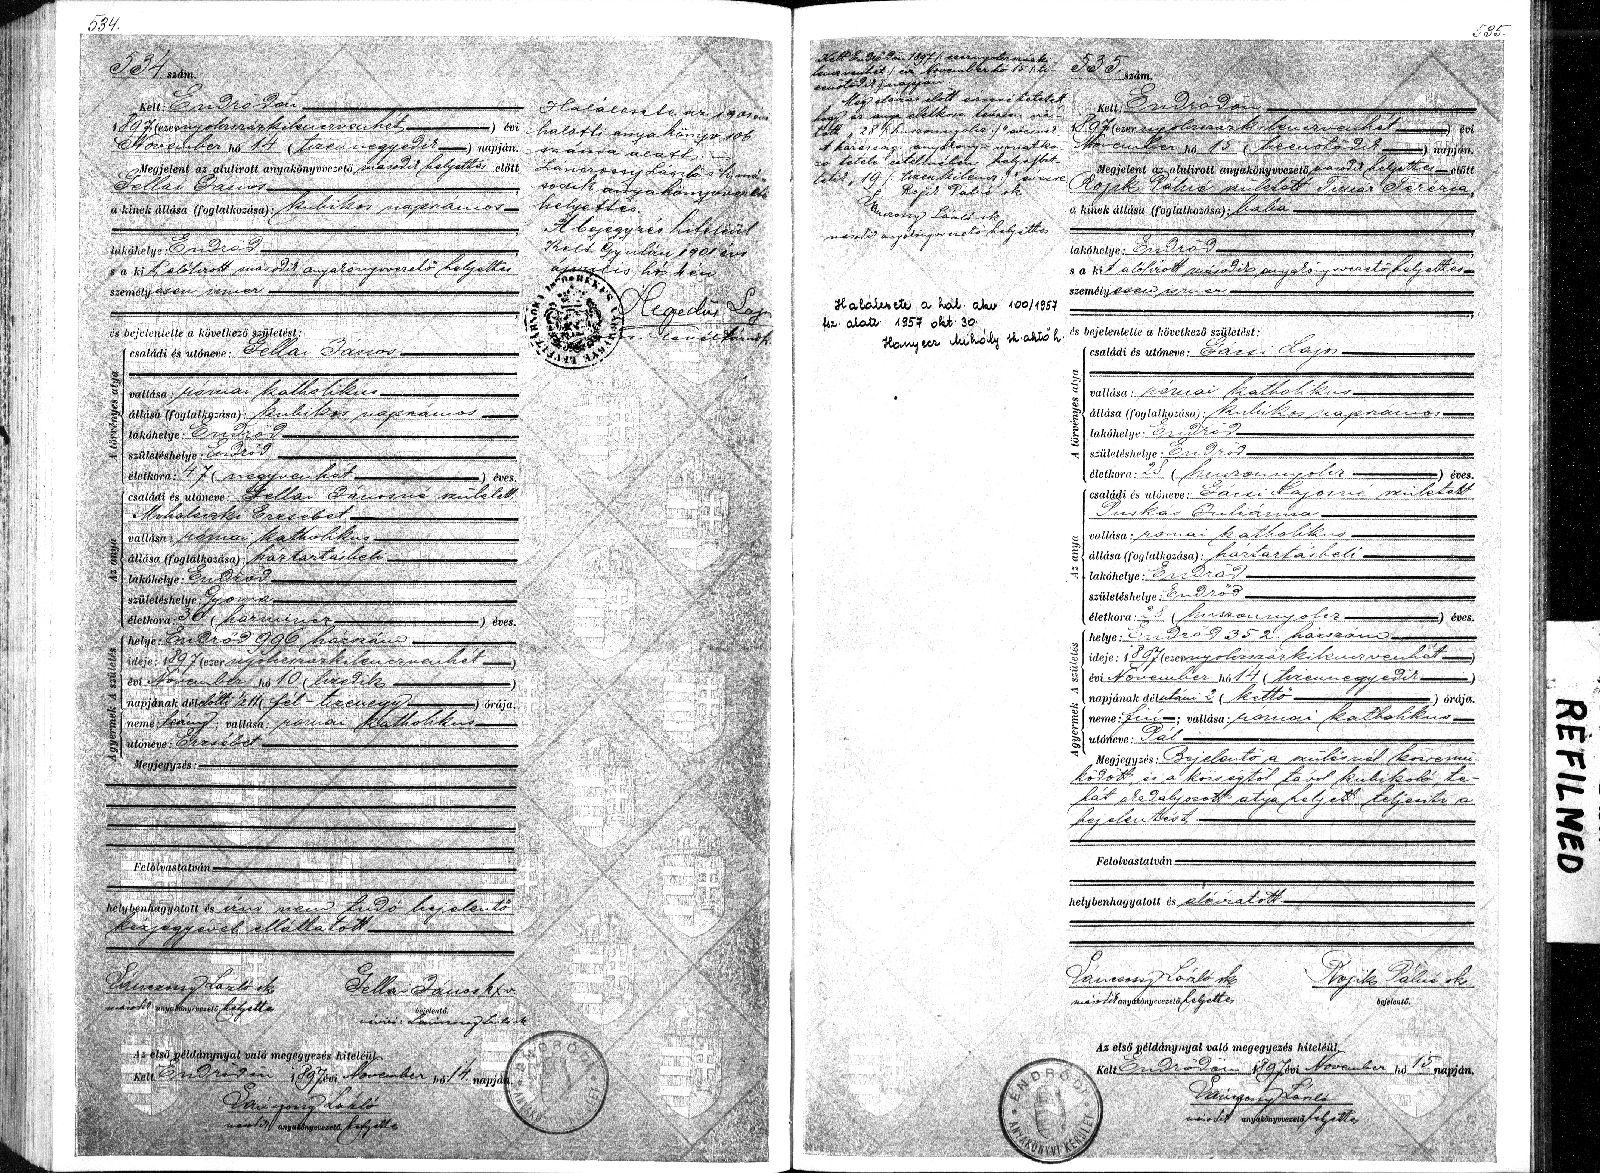 534.
534 szám.
Kelt: Endrődön
1897 (ezernyolczszázkilenczvenhét) évi
November hó 14 (tizennegyedik) napján.
Megjelent az alulirott anyakönyvezető második helyettes előtt
Gellai János
a kinek állása (foglalkozása): kubikos napszámos
lakóhelye: Endrőd
s a kit előlirott második anyakönyvvezető helyettes
személyesen ismer
és bejelentette a következő születést:
A törvényes atya
családi és utóneve: Gellai János
vallása: római katholikus
állása (foglalkozása): kubikos napszámos
lakóhelye: Endrőd
születéshelye: Endrőd
életkora: 47 (negyvenhét) éves.
Az anya
családi és utóneve: Gellai Jánosné született
Erzsébet
vallása: római katholikus
állása (foglalkozása): háztartásbeli
lakóhelye: Endrőd
születéshelye: Gyoma
életkora: 30 (harmincz) éves.
A gyermek A születés
helye: Endrőd 996 házszám
ideje: 1897 (ezernyolczszázkilenczvenhét)
évi November hó 10 (tizedik)
napjának délelőtti ½11 (fél-tizenegy) órája.
neme: leány; vallása: római katholikus
utóneve: Erzsébet
Megjegyzés:
Felolvastatván
helybenhagyatott és irni nem tudó bejelentő
kézjegyével elláttatott
Lánczossy László sk
második anyakönyvvezető helyettes
Gellai János
bejelentő.
Az első példánynyal való megegyezés hiteléül.
Kelt Endrődön 1897 évi November hó 14 napján.
Lánczossy László
második anyakönyvvezető helyettes
Halálesete az 1901 évi
halotti anyakönyv 106
száma alatt
Lánczossy László s k má-
sodik anyakönyvvezető
helyettes.
A bejegyzés hiteléül
Kelt Gyulán 1901 évi
április hó
Hegedüs
535.
535 szám.
Kelt: Endrődön
1897 (ezernyolczszázkilenczvenhét) évi
November hó 15 (tizenötödik) napján.
Megjelent az alulirott anyakönyvvezető második helyettes előtt
Rojik Pálné született Timár Terézia
a kinek állása (foglalkozása): bába
lakóhelye: Endrőd
s a kit előlirott második anyakönyvvezető helyettes
személyesen ismer
és bejelentette a következő születést:
A törvényes atya
családi és utóneve: Gácsi Lajos
vallása: római katholikus
állása (foglalkozása): kubikos napszámos
lakóhelye: Endrőd
születéshelye: Endrőd
életkora: 28 (huszonnyolcz) éves.
Az anya
családi és utóneve: Gácsi Lajosné született
Puskás Julianna
vallása: római katholikus
állása (foglalkozása): háztartásbeli
lakóhelye: Endrőd
születéshelye: Endrőd
életkora: 28 (huszonnyolcz) éves.
A gyermek A születés
helye: Endrőd 352 házszám
ideje: 1897 (ezernyolczszázkilenczvenhét)
évi November hó 14 (tizennegyedik)
napjának délutáni 2 (kettő) órája.
neme: fiu; vallása: római katholikus
utóneve: Pál
Megjegyzés: Bejelentő a szülésnél közremü-
ködött, és a községtől távol kubikoló te-
hát akadályozott atya helyett teljesiti a
bejelentést.
Felolvastatván
helybenhagyatott és aláiratott
Lánczossy László sk
második anyakönyvvezető helyettes
Rojik Pálné sk
bejelentő.
Az első példánynyal való megegyezés hiteléül.
Kelt Endrődön 1897 évi November hó 15 napján.
Lánczossy László
második anyakönyvvezető helyettes
ENDRŐDI
ANYAKÖNYVI KERÜLET
Rojik Pálné sk
Lánczossy László sk
második anyakönyvvezető helyettes
Halálesete a hal. akv 100/1957
fsz. alatt 1957 okt. 30.
Hanyecz Mihály sk aktóh.
REFILMED